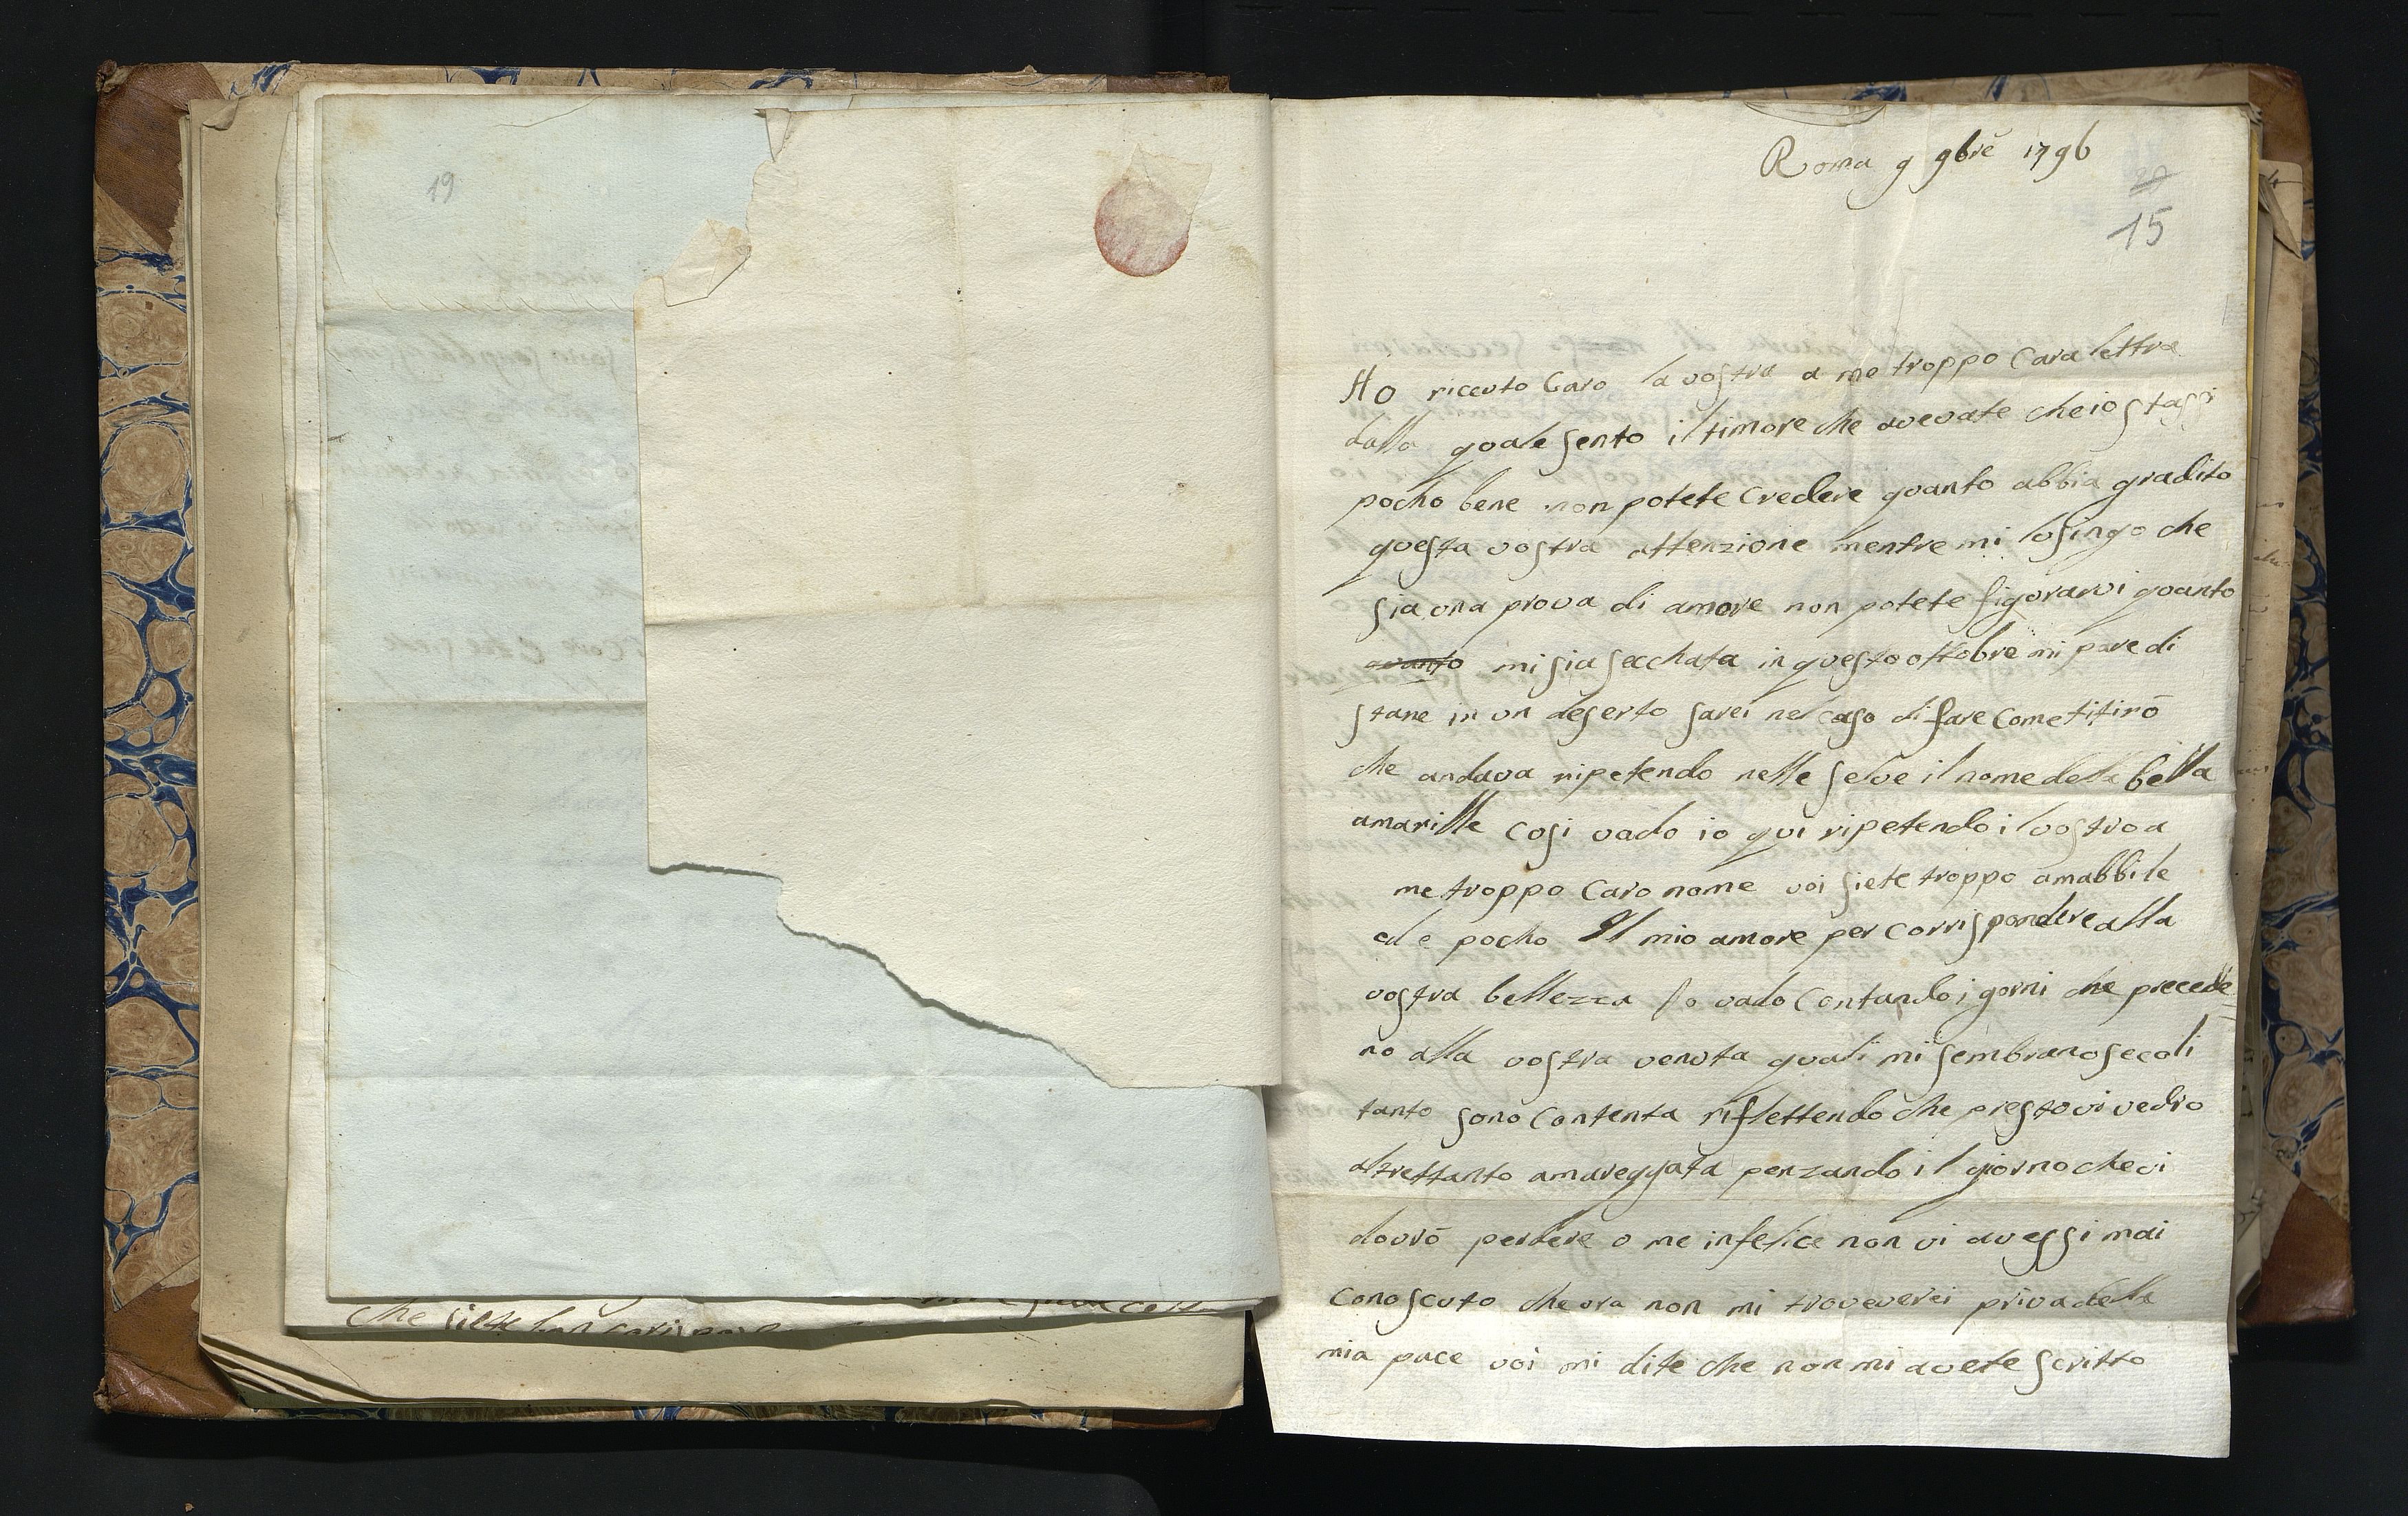 19
che siete
Roma 9 9bre 1796
20
15
Ho riceuto Caro la vostra a me troppo Cara lettra
dalla quale sento il timore che avevate che io stassi
pocho bene non potete Credere quanto abbia gradito
questa vostra attenzione mentre mi lusingo che
sia una prova di amore non potete figurarvi quanto
quanto mi sia secchata in questo ottobre mi pare di
stare in un deserto sarei nel caso di fare Come titirò
che andava ripetendo nelle selve il nome della bella
amarille cosi vado io qui ripetendo il vostro a
me troppo Caro nome voi siete troppo amabbile
ed e pocho Il mio amore per corrispondere alla
vostra bellezza Io vado Contando i gorni che precede
no alla vostra venuta quali mi sembrano secoli
tanto sono Contenta riflettendo che presto vi vedro
altrettanto amareggata penzando il giorno che vi
dovrò perdere o me infelice non vi avessi mai
conoscuto che ora non mi troveverei priva della
mia pace voi mi dite che non mi avete scritto